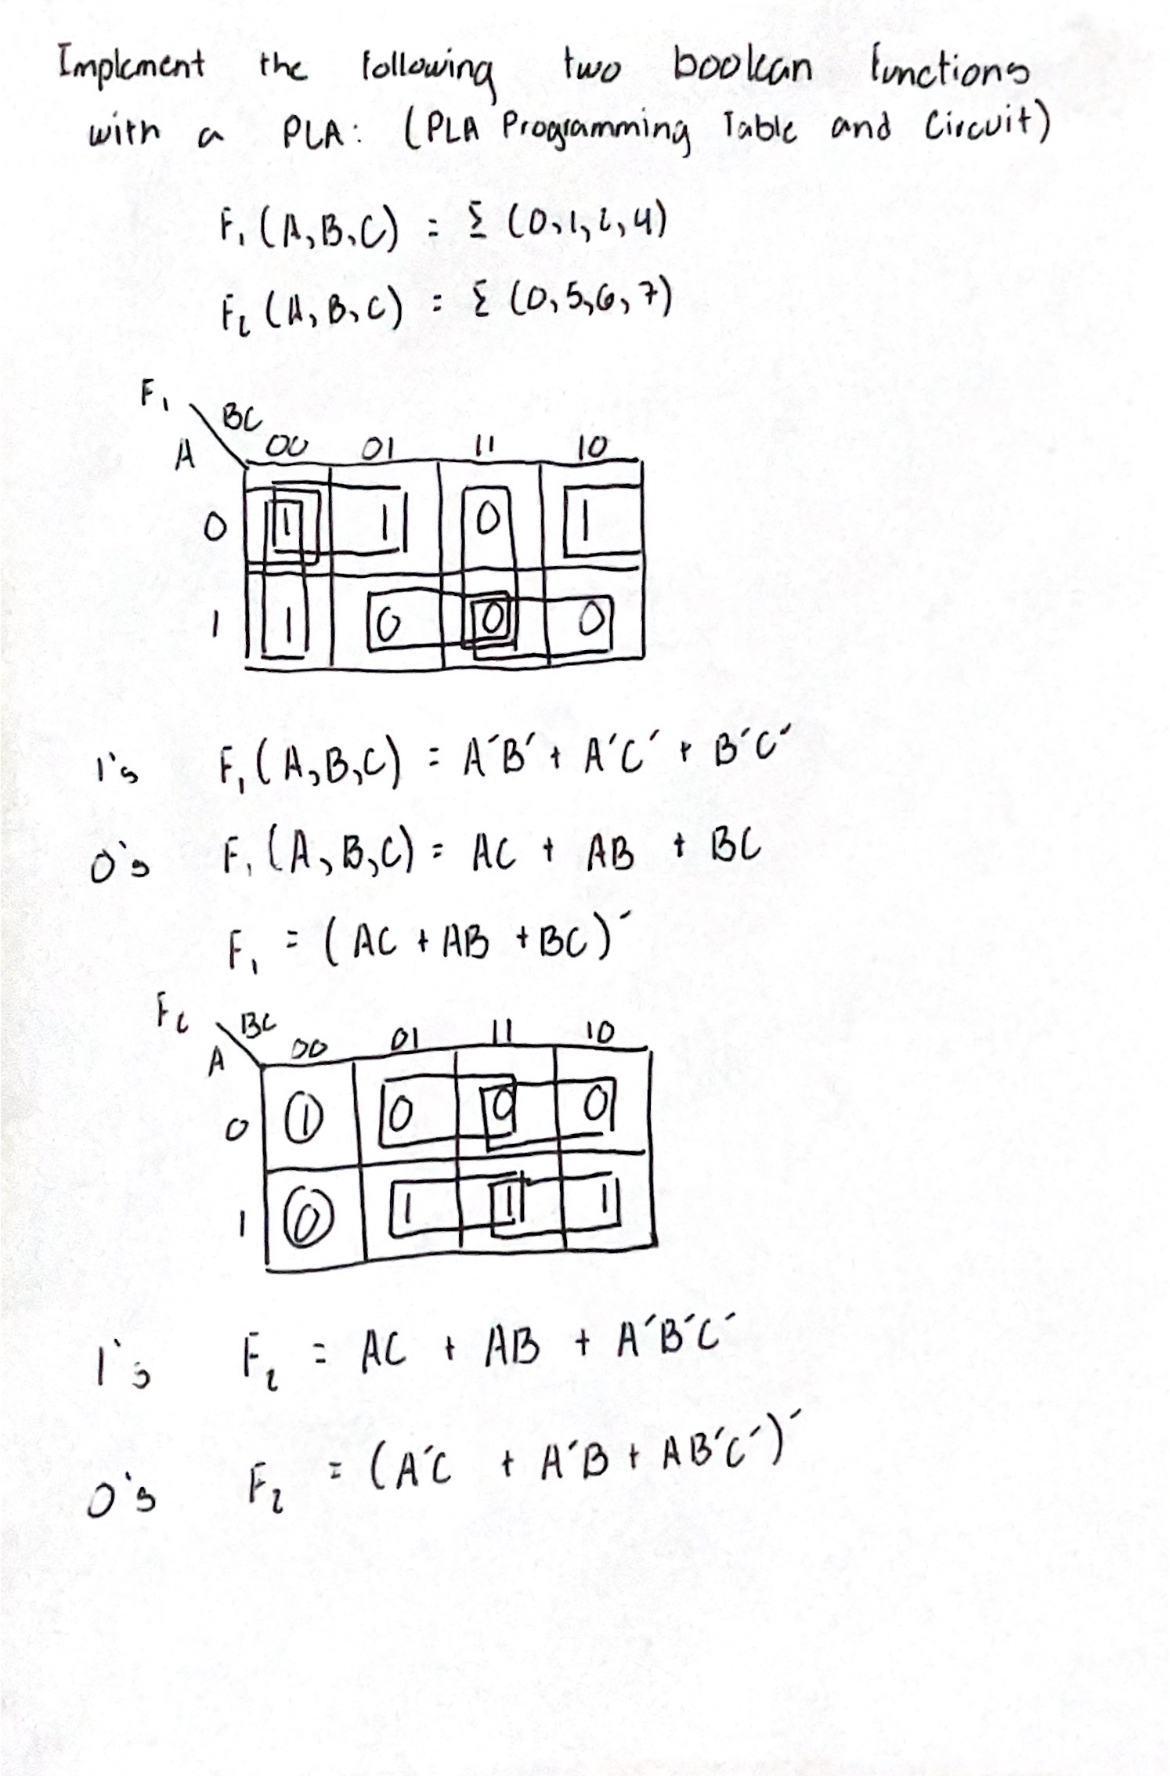 Implement the following two boolean functions
with a PLA: (PLA Programming Table and Circuit)
F₁ (A,B,C) = Σ (0,1,2,4)
F₂ (A,B,C) = Σ (0,5,6,7)
F₁ BC
A 00 01 11 10
0 1 1 0 1
1 1 0 0 0
1's F₁(A,B,C) = A'B' + A'C' + B'C'
0's F₁(A,B,C) = AC + AB + BC
F₁ = (AC + AB + BC)'
F₂ BC
A 00 01 11 10
0 1 0 0 0
1 0 1 1 1
1's F₂ = AC + AB + A'B'C'
0's F₂ = (A'C + A'B + AB'C')'